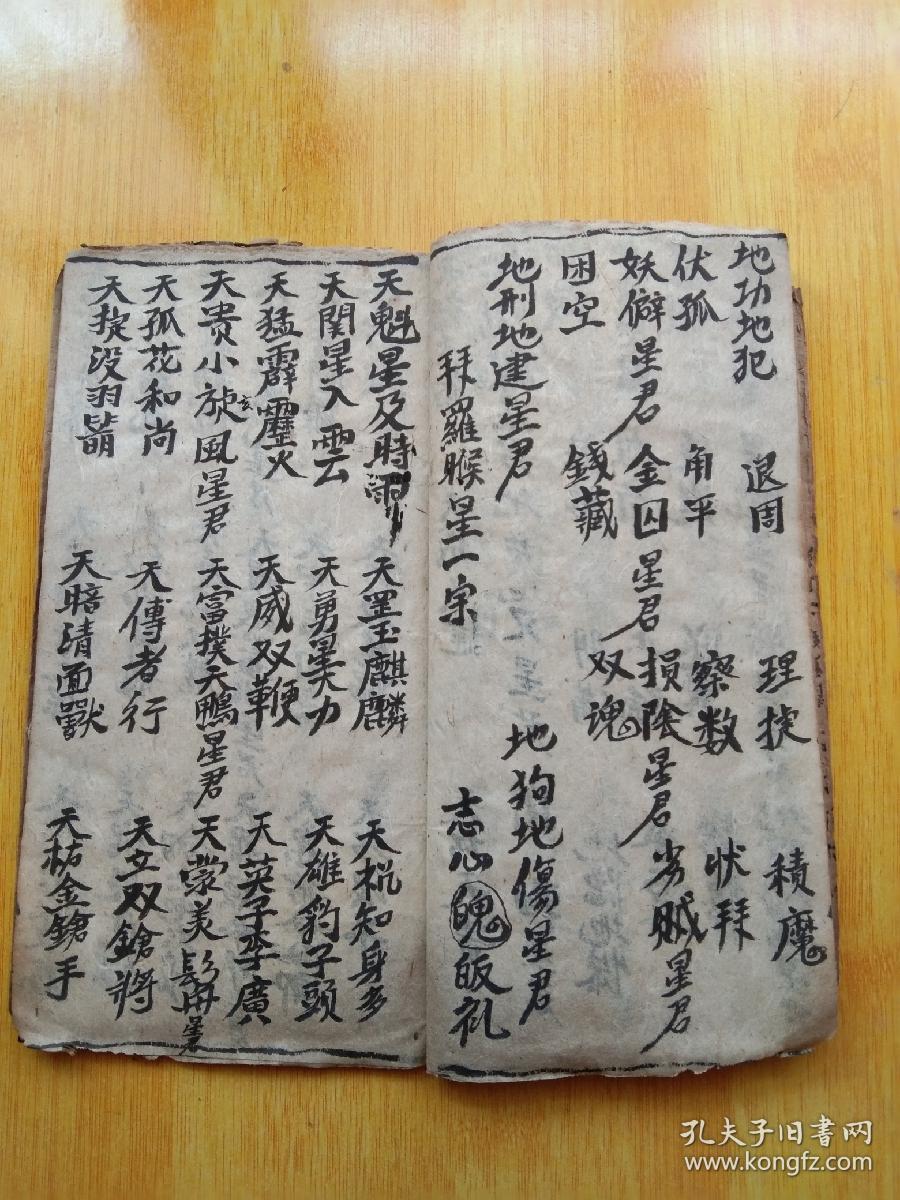 地功地犯 退周 理捉 積魔
伏孤 角平 察数 状拜
妖僻星君 金囚星君 損陰星君 劣贼星君
困空 錢藏 双魂
地刑地建星君 地狗地傷星君
拜羅睺星一宗 志心皈礼
天魁星及時雨 天罡玉麒麟 天机知身多
天関星入雲 天勇星大力 天雄豹子頭
天猛霹靂火 天威双鞭 天英子李廣
天贵小旋風星君 天富撲天鵰星君 天蒙美髯星君
天孤花和尚 天傳者行 天立双鎗將
天捉没羽箭 天暗清面獸 天祐金鎗手
孔夫子旧书网
www.kongfz.com